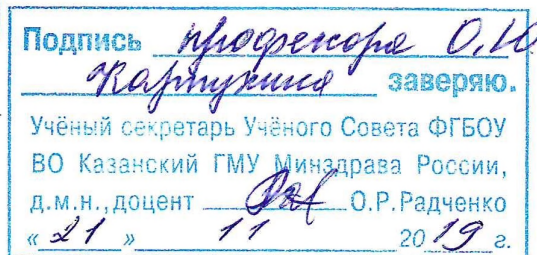 Подпись профессора О.Ю.
Карпухина заверяю.
Учёный секретарь Учёного Совета ФГБОУ
ВО Казанский ГМУ Минздрава России,
д.м.н.,доцент О.Р.Радченко
« 21 » 11 20 19 г.